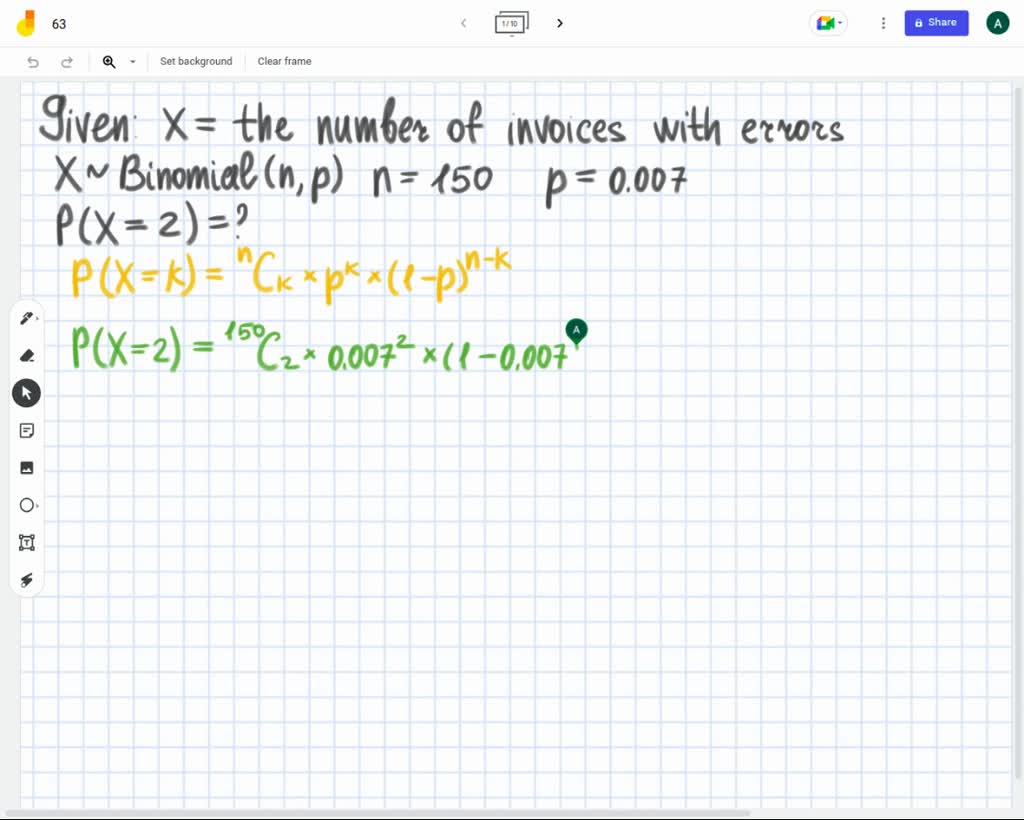 63
1 / 10
Share
A
Set background
Clear frame
Given: X = the number of invoices with errors
X ~ Binomial (n, p) n = 150 p = 0.007
P(X = 2) = ?
P(X = k) = ⁿCₖ × pᵏ × (1-p)ⁿ⁻ᵏ
A
P(X=2) = ¹⁵⁰C₂ × 0.007² × (1 - 0.007
T